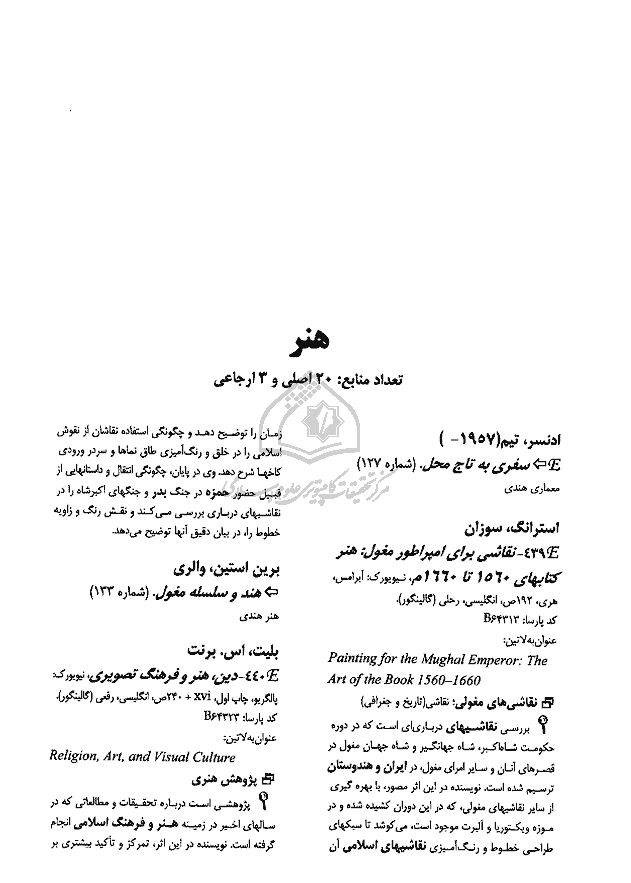 هنر
تعداد منابع: ۲۰ اصلی و ۳ ارجاعی
ادنسر، تیم(۱۹۵۷- )
E⇦ سفری به تاج محل. (شماره ۱۲۷)
معماری هندی
استرانگ، سوزان
E۴۳۹- نقاشی برای امپراطور مغول: هنر
کتابهای ۱۵۶۰ تا ۱۶۶۰م، نیویورک: آبرامس،
هری، ۱۹۲ص، انگلیسی، رحلی (گالینگور).
کد پارسا: B۶۴۳۱۳
عنوان‌به‌لاتین:
Painting for the Mughal Emperor: The
Art of the Book 1560–1660
نقاشی‌های مغولی: نقاشی(تاریخ و جغرافی)
بررسی نقاشیهای درباری‌ای است که در دوره
حکومت شاه‌اکبر، شاه جهانگیر و شاه جهان مغول در
قصرهای آنان و سایر امرای مغول، در ایران و هندوستان
ترسیم شده است. نویسنده در این اثر مصور، با بهره گیری
از سایر نقاشیهای مغولی، که در این دوران کشیده شده و در
موزه ویکتوریا و آلبرت موجود است، می‌کوشد تا سبکهای
طراحی خطوط و رنگ‌آمیزی نقاشیهای اسلامی آن
زمان را توضیح دهد و چگونگی استفاده نقاشان از نقوش
اسلامی را در خلق و رنگ‌آمیزی طاق نماها و سردر ورودی
کاخها شرح دهد. وی در پایان، چگونگی انتقال و داستانهایی از
قبیل حضور حمزه در جنگ بدر و جنگهای اکبرشاه را در
نقاشیهای درباری بررسی می‌کند و نقش رنگ و زاویه
خطوط را، در بیان دقیق آنها توضیح می‌دهد.
برین استین، والری
⇦ هند و سلسله مغول. (شماره ۱۳۳)
هنر هندی
بلیت، اس. برنت
E۴۴۰-دین، هنر و فرهنگ تصویری، نیویورک:
پالگریو، چاپ اول، xvi + ۲۴۰ص، انگلیسی، رقعی (گالینگور).
کد پارسا: B۶۴۳۲۳
عنوان‌به‌لاتین:
Religion, Art, and Visual Culture
پژوهش هنری
پژوهشی است درباره تحقیقات و مطالعاتی که در
سالهای اخیر در زمینه هنر و فرهنگ اسلامی انجام
گرفته است. نویسنده در این اثر، تمرکز و تأکید بیشتری بر